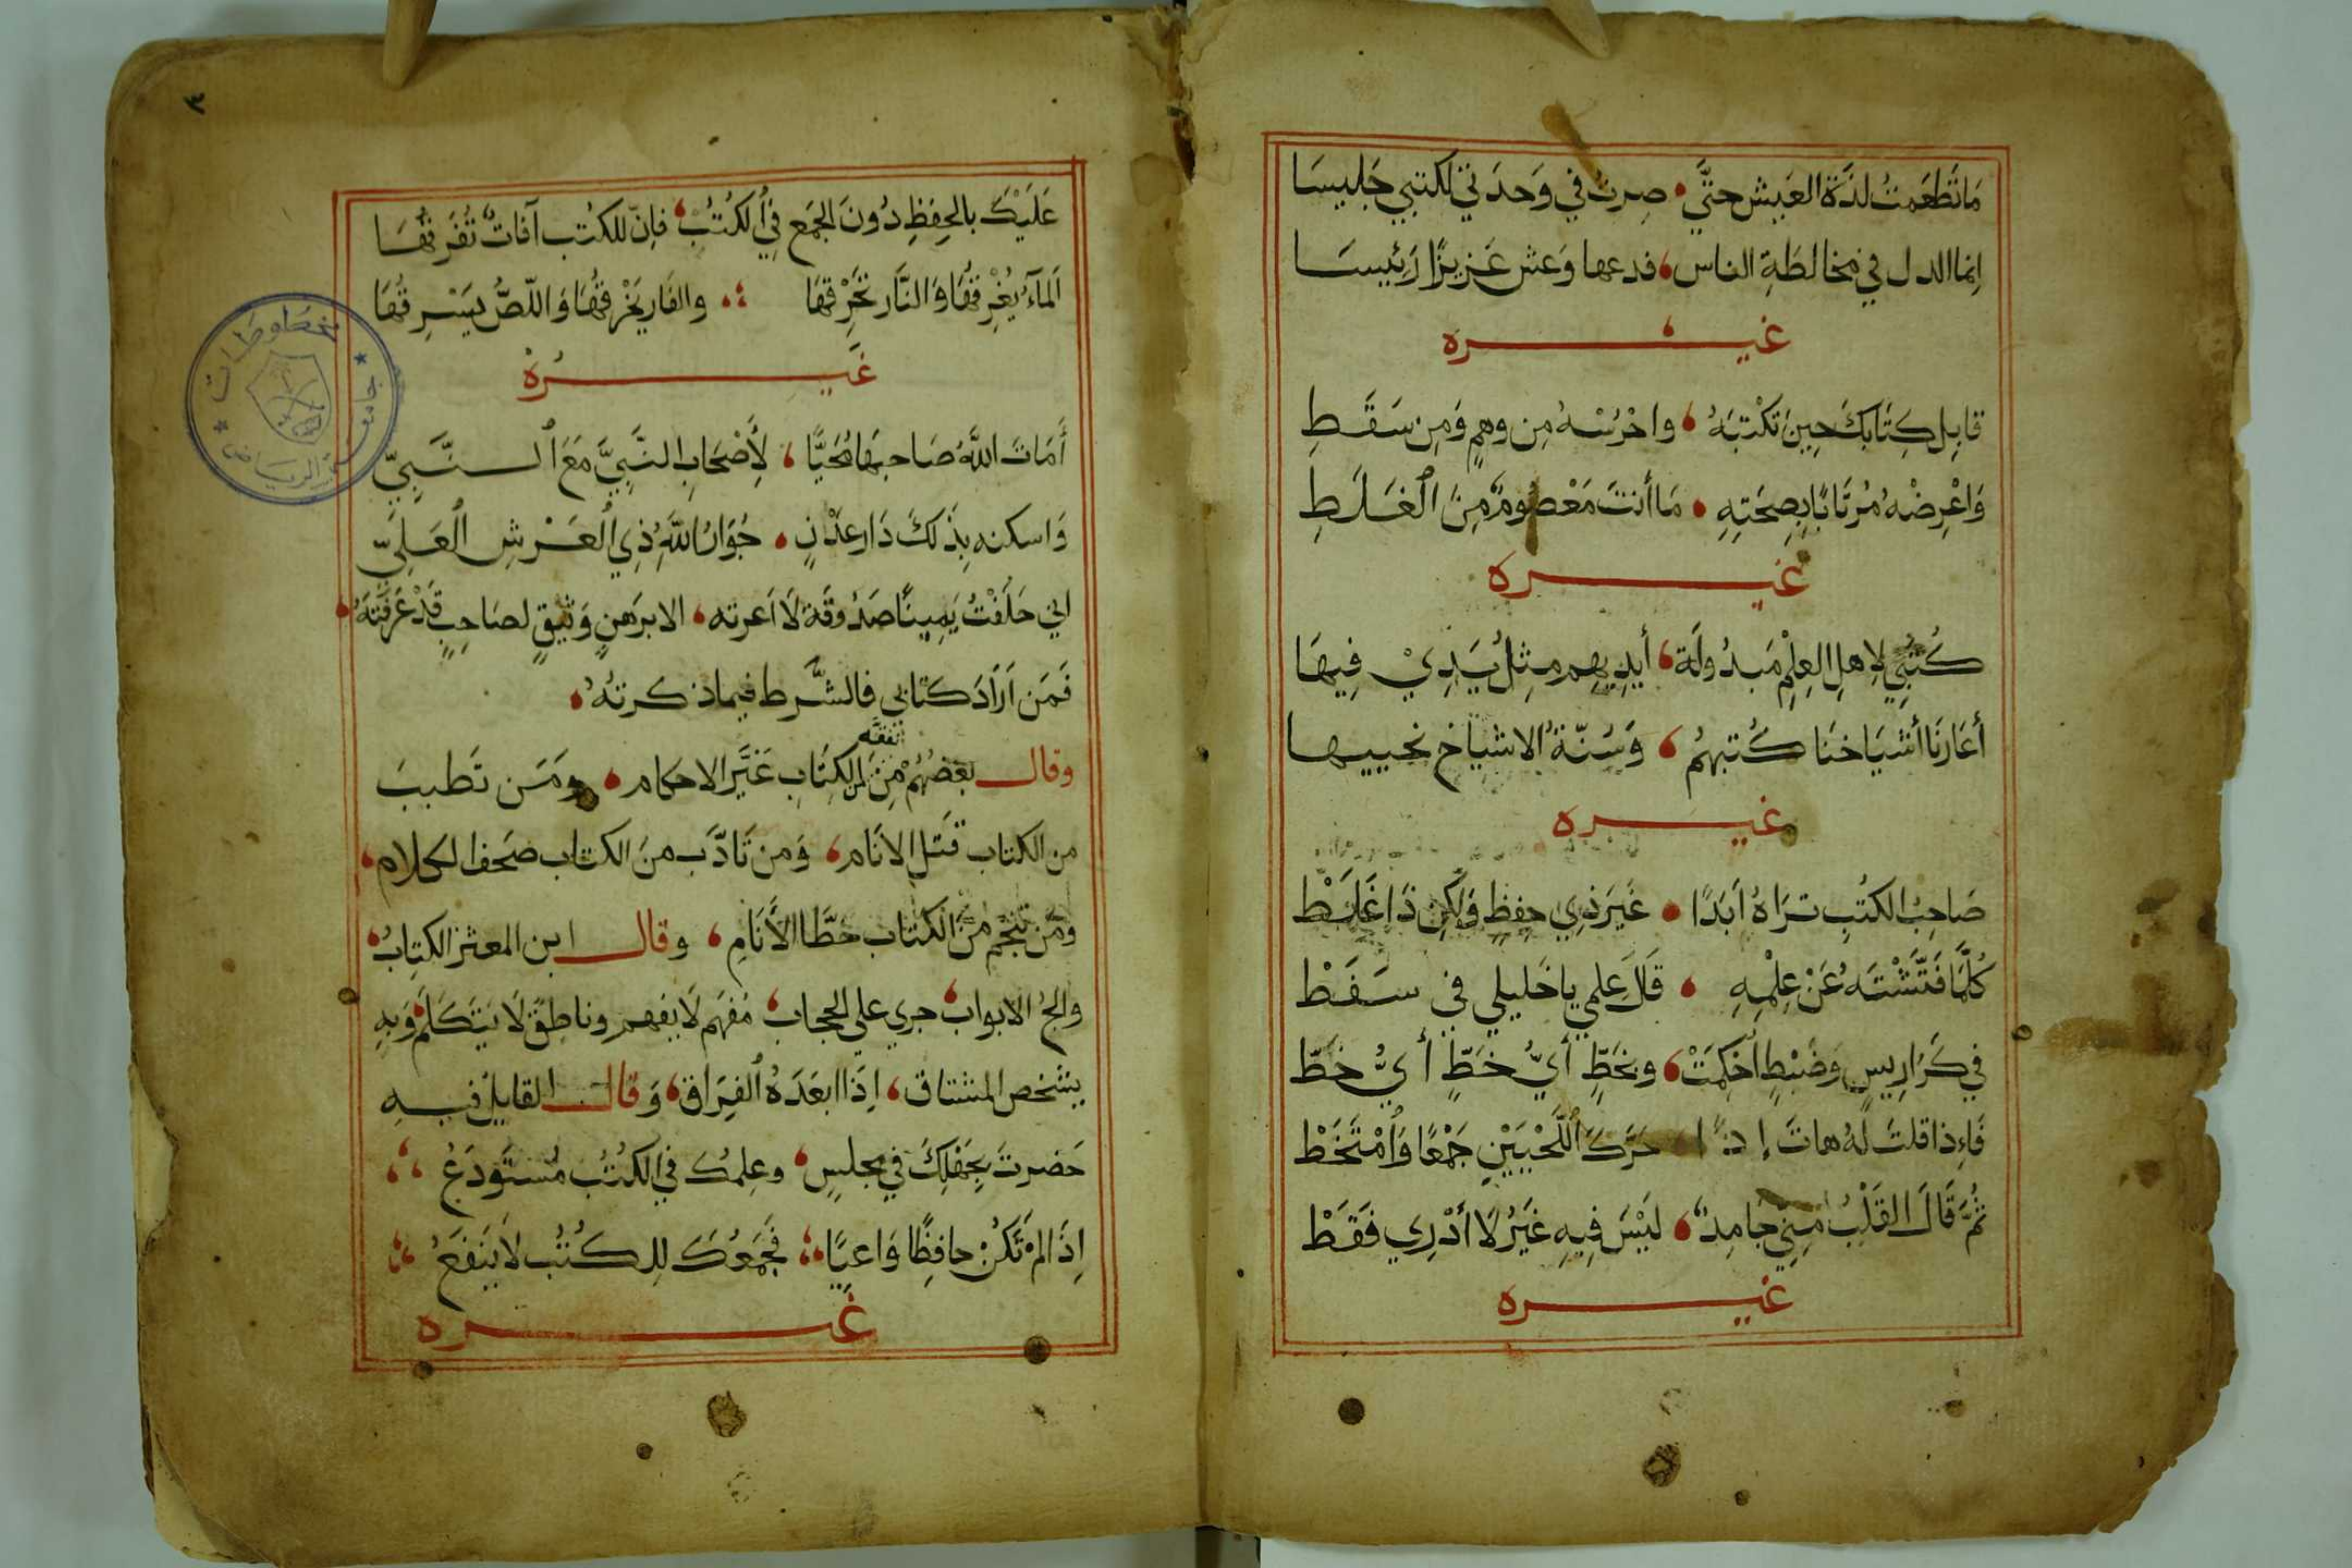 مَا تَطَعَّمتُ لذَّةَ العَيش حتَّى صِرتُ في وَحدَتي لكتبي جَليسَا
اِنما الدل في مخالطَةِ الناس فدعها وَعش عَزيزًا رَئيسَا
غيره
قابِل كِتَابَكَ حِينَ تكْتبَهُ واحْرُسْهُ مِن وهمٍ وَمِن سَقَطِ
وَاعْرِضْهُ مُرتَابًا بِصِحَتِهِ مَا أنتَ مَعْصُومٌ مِنَ الْغَلَطِ
غيره
كُتْبِي لِاهلِ العِلْمِ مَبدُولَة أيدِيهِم مِثلُ يَدِيْ فِيهَا
أعَارَنَا أشيَاخنَا كُتبهُم وَسُنّةُ الاشياخ نحييها
غيره
صَاحِبُ الكتُبِ تَرَاهُ اَبَدًا غَيرَ ذِي حِفظٍ وَلَكِن ذَا غَلَطْ
كُلَّمَا فَتَّشْتَهُ عَنْ عِلْمِهِ قَالَ عِلمي يا خَليلي في سَفَطْ
في كَرَارِيسٍ وَضَبْطٍ اُحْكِمَتْ وبخَطٍّ أيُّ خَطٍّ أيُّ خَطّ
فَاءِذا قلتَ لهُ هاتَ إذًا حَرَّكَ اللَّحْيَيْنِ جَمْعًا وَامْتَخَطْ
ثُمَّ قَالَ القَلْبُ مِنِّي جامِدٌ لَيْسَ فِيهِ غَيْرُ لَا أدْرِي فَقَطْ
غيره
٣
عَلَيْكَ بالحِفظِ دُونَ الجَمْعِ في الكُتُبْ فإنّ للكتُب آفاتٌ تُفَرِقُهَا
اَلمآءُ يُغْرِقُهَا وَالنَّار تَحْرِقهَا والفَار يَخْرقهَا وَاللّصُّ يَسْرِقُهَا
غَيرُهُ
أَمَاتَ اللَّهُ صَاحبهَا مُحَيًّا لِأَصْحَابِ النَّبِيَّ مَعَ النَّبِيّ
وَاسكنه بِذَلكَ دَار عدْنٍ جُوَارُ اللَّهِ ذِي الْعَرْشِ الْعَلِيّ
اني حَلَفْتُ يَمِينًا صَدُوقَة لَا اَعرته الا برَهنٍ وَثيقٍ لصَاحِبٍ قَدْ عَرَفْتَهُ
فَمَن اَرَادَ كتَابي فالشَّرط فيما ذكرتُهُ
وقال بعَضُهُمْ مِنَ تفقه الكِتَابِ غَيَّر الاحكام ومَن تَطببَ
من الكتاب قَتَل الانَام وَمن تَادّب منَ الكتاب صَحف الكلام
ومَن تَنَجَّم مِنَ الكتاب خطَّا الأَنَامِ وقال ابن المعتز الكتِابُ
والجُ الابواب جري على الحجاب مُفهم لَا يفهم وناطِقٌ لَا يَتَكَلَّمْ وَبِهِ
يشخص المشتاق اِذَا ابعَدَهُ الْفِرَاق وَقال القايلُ فيهِ
حَضرتَ بِجَهْلِكَ في مجلسٍ وعِلمُكَ في الكتُب مُستَودَعُ
اِذَا لمْ تَكُنْ حافِظًا وَاعيًا فَجَمْعُكَ لِلكُتُب لا يَنفَعُ
غيره
مخطوطات
جامعة الرياض